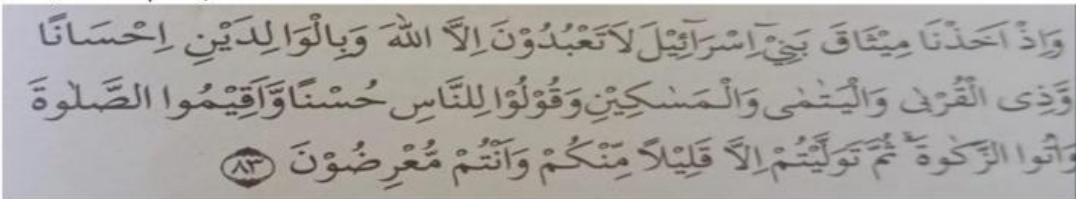 وَاِذْ اَخَذْنَا مِيْثَاقَ بَنِيْٓ اِسْرَآئِيْلَ لَا تَعْبُدُوْنَ اِلَّا اللّٰهَ وَبِالْوَالِدَيْنِ اِحْسَانًا
وَّذِى الْقُرْبٰى وَالْيَتٰمٰى وَالْمَسٰكِيْنِ وَقُوْلُوْا لِلنَّاسِ حُسْنًا وَّاَقِيْمُوا الصَّلٰوةَ
وَاٰتُوا الزَّكٰوةَ ۗ ثُمَّ تَوَلَّيْتُمْ اِلَّا قَلِيْلًا مِّنْكُمْ وَاَنْتُمْ مُّعْرِضُوْنَ ﴿٨٣﴾